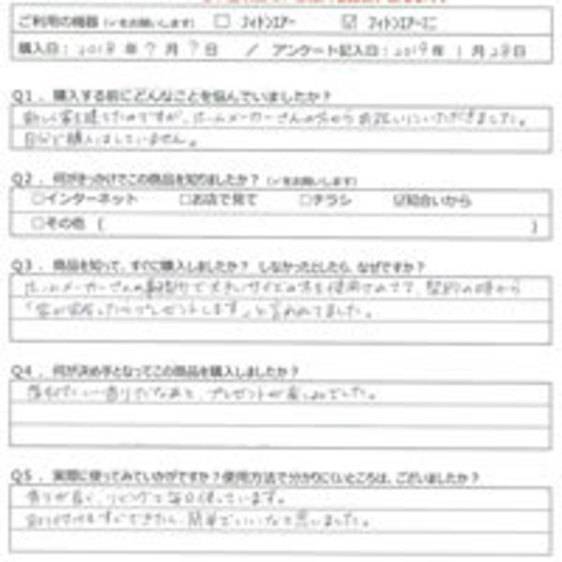 ご利用の機器（✓をお願いします） ☐ フィトンエアー ☑ フィトンエアーミニ
購入日：2018 年 ? 月 ? 日 / アンケート記入日：2019 年 1 月 28 日
Q1．購入する前にどんなことを悩んでいましたか？
新しく家を建てたのですが、ホームメーカーさんの方からお祝いにいただきました。
自分で購入はしていません。
Q2．何がきっかけでこの商品を知りましたか？（✓をお願いします）
☐インターネット ☐お店で見て ☐チラシ ☑知合いから
☐その他 ( )
Q3．商品を知って、すぐに購入しましたか？ しなかったとしたら、なぜですか？
ホームメーカーさんの で大きいサイズの方を使用されてて、契約の時から
「家が完成したらプレゼントします」と言われてました。
Q4．何が決め手となってこの商品を購入しましたか？
いい香りだなあと、プレゼントが楽しみでした。
Q5．実際に使ってみていかがですか？使用方法で分かりにくいところは、ございましたか？
香りが良く、リビングで毎日使っています。
取り付けもすぐできたし、簡単でいいなと思いました。